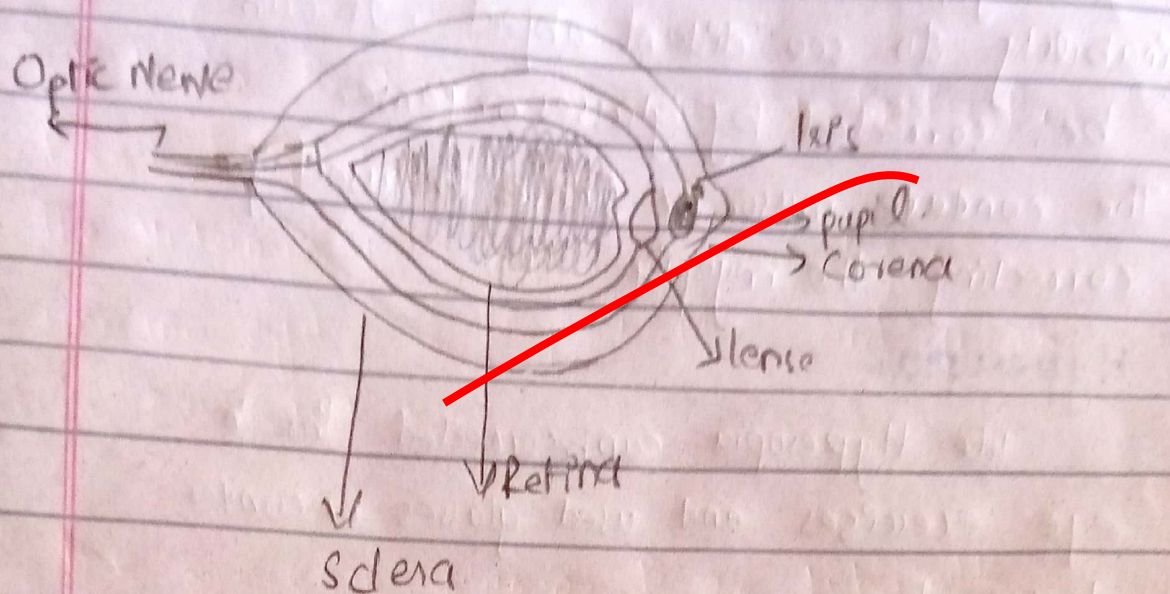 Optic Nerve
pupil
Corena
lense
Retina
Sclera